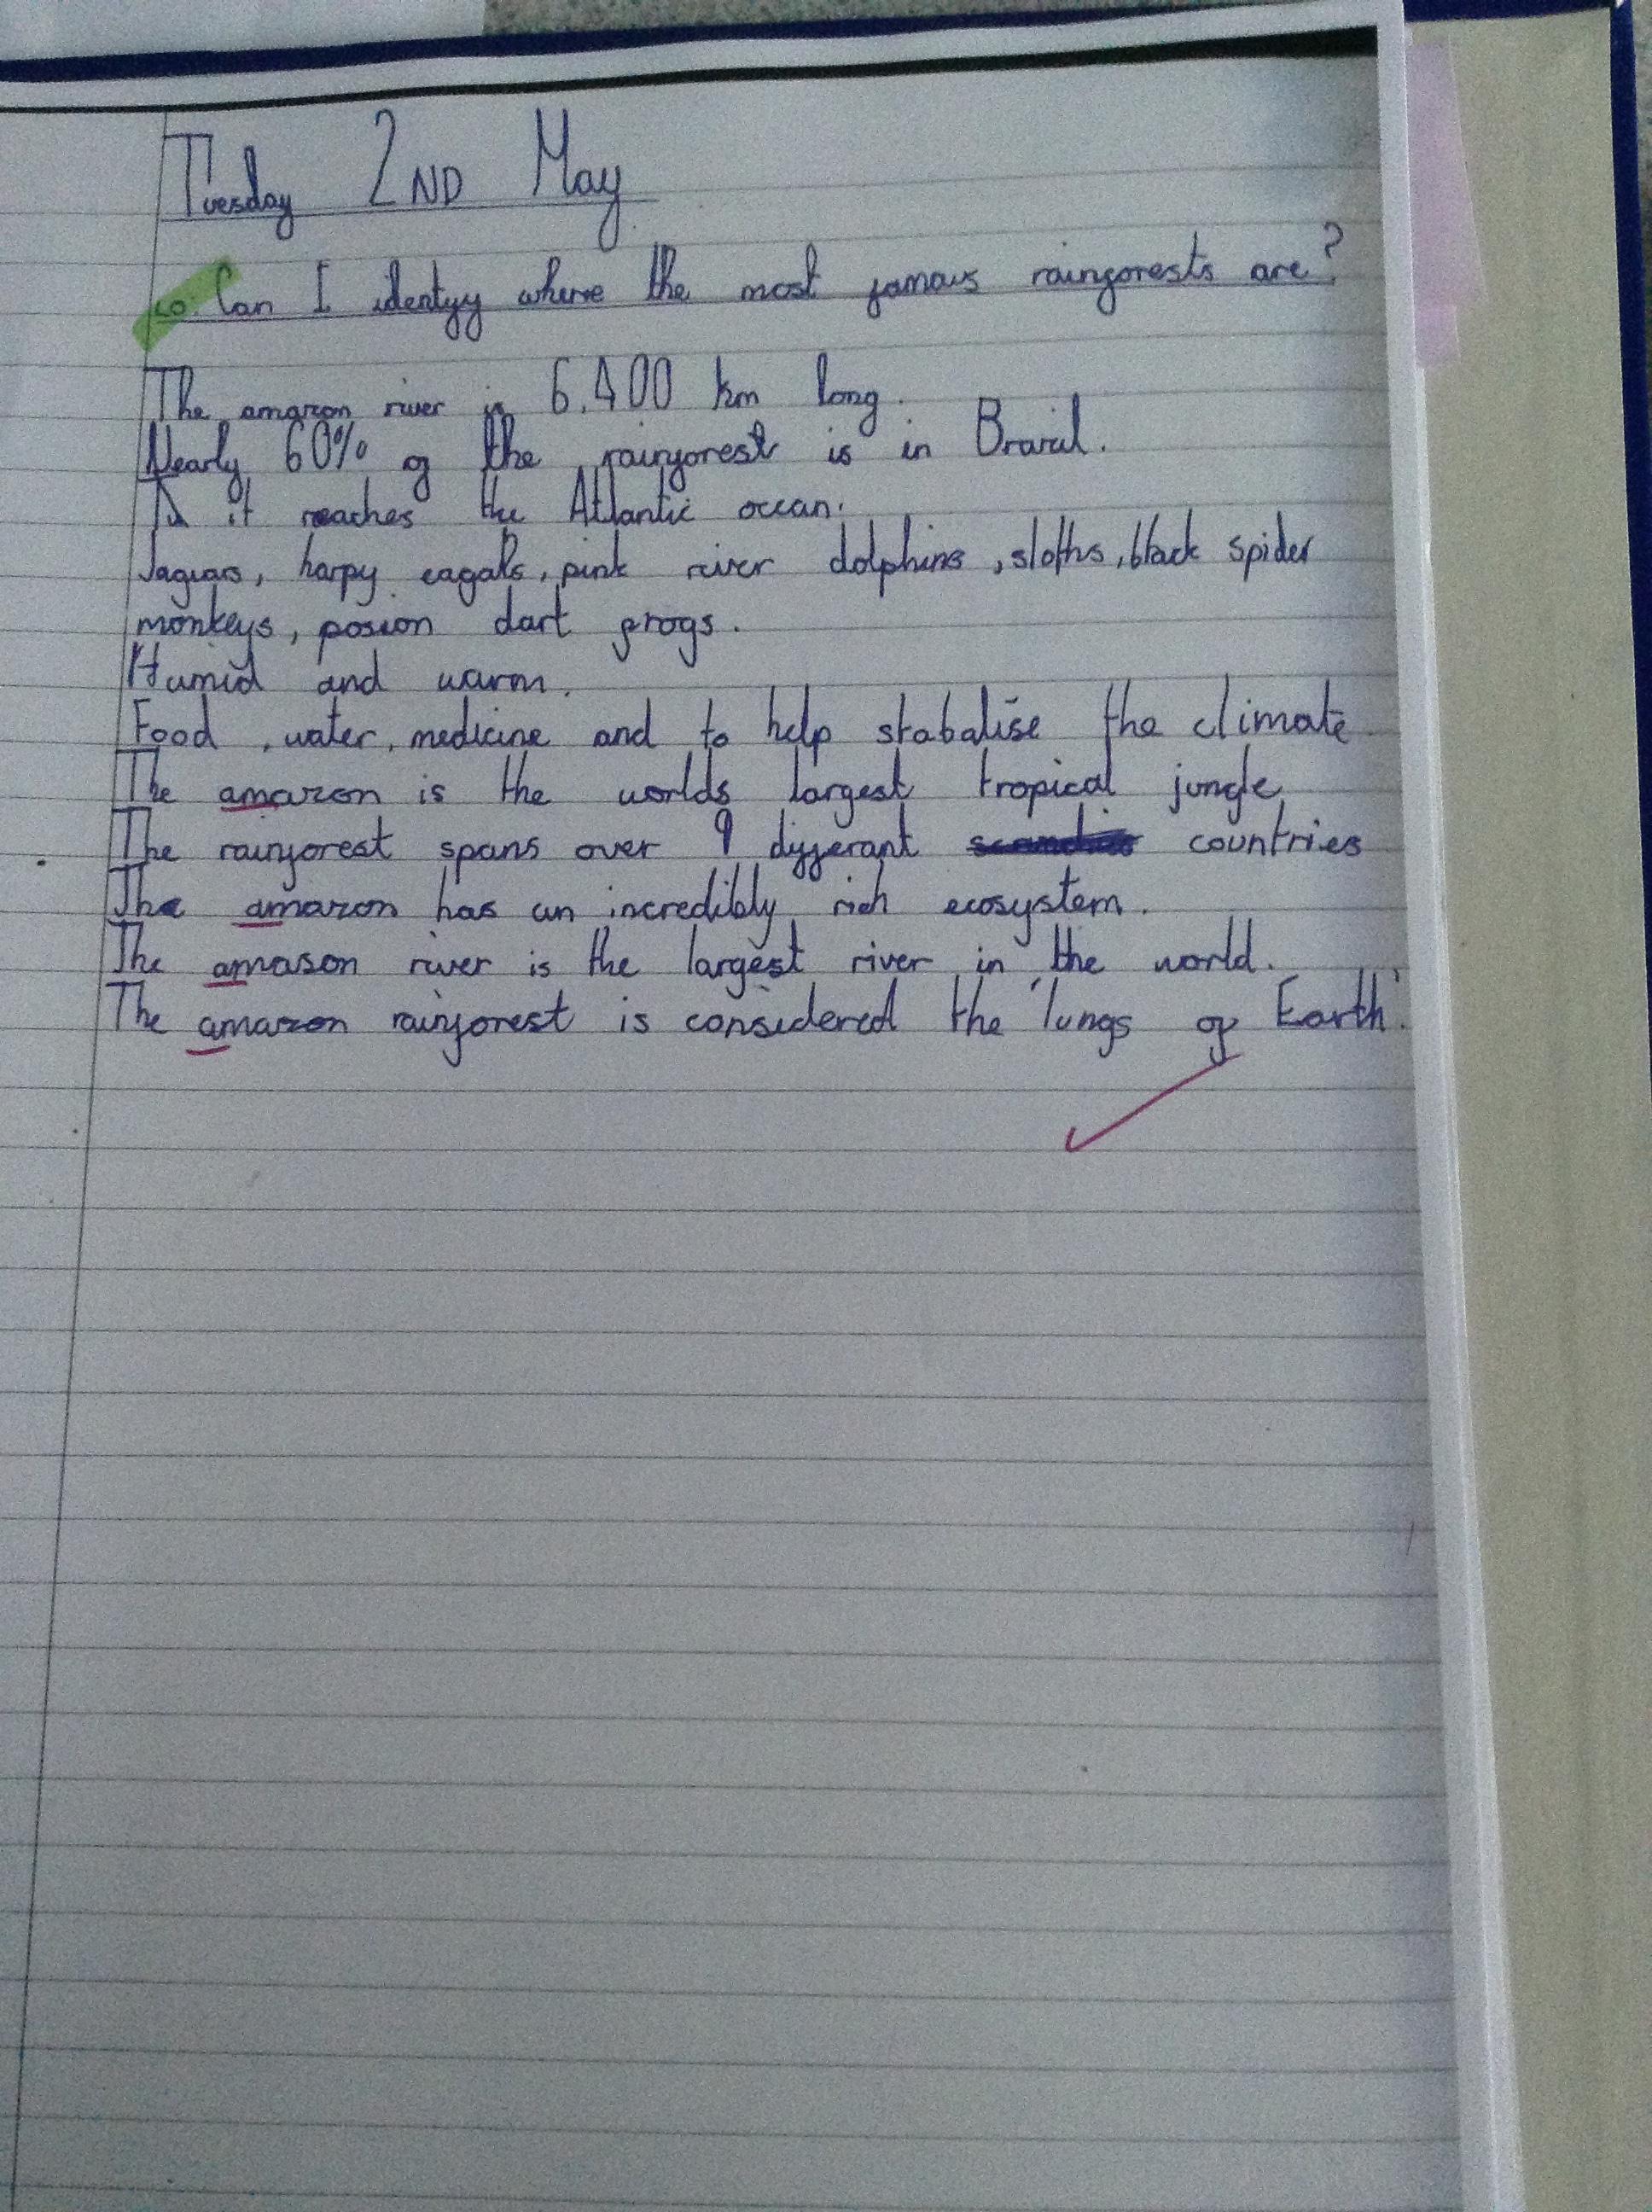 Tuesday 2ND May
LO: Can I identify where the most famous rainforests are?
The amazon river is 6,400 km long.
Nearly 60% of the rainforest is in Brazil.
it reaches the Atlantic ocean.
Jaguars, harpy eagals, pink river dolphins, sloths, black spider
monkeys, posion dart frogs.
Humid and warm.
Food, water, medicine and to help stabalise the climate
The amazon is the worlds largest tropical jungle
The rainforest spans over 9 differant countries
The amazon has an incredibly rich ecosystem.
The amason river is the largest river in the world.
The amazon rainforest is considered the 'lungs of Earth'.